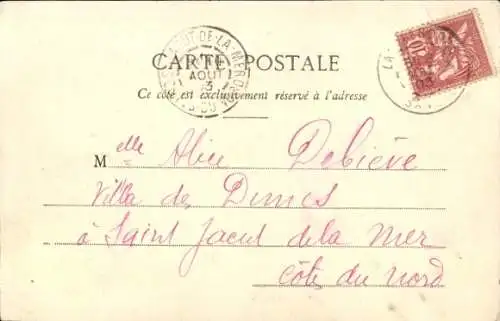 CARTE POSTALE
Ce côté est exclusivement réservé à l'adresse
Melle Alice Debiève
Villa des Dunes
à Saint Jacut de la Mer
Côtes du Nord
AOUT